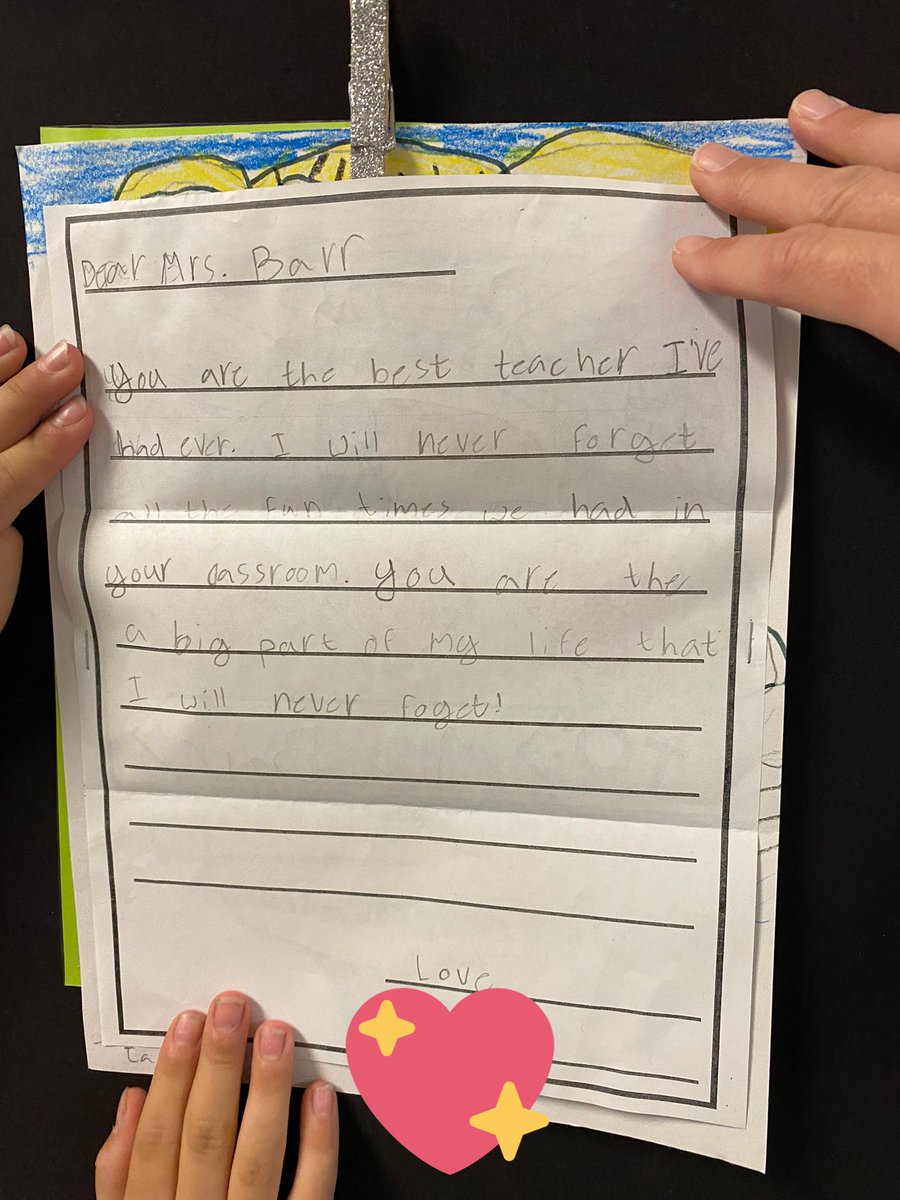 Dear Mrs. Barr
You are the best teacher I've
had ever. I will never forget
all the fun times we had in
your classroom. You are the
a big part of my life that
I will never foget!
Love